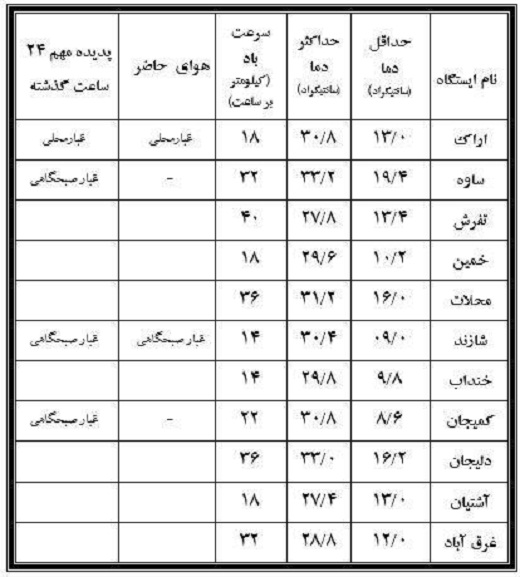 نام ایستگاه
حداقل
دما
(سانتیگراد)
حداکثر
دما
(سانتیگراد)
سرعت
باد
(کیلومتر
بر ساعت)
هوای حاضر
پدیده مهم ۲۴
ساعت گذشته
اراک ۱۳/۰ ۳۰/۸ ۱۸ غبارمحلی غبارمحلی
ساوه ۱۹/۴ ۳۳/۲ ۳۲ - غبار صبحگاهی
تفرش ۱۳/۴ ۲۷/۸ ۴۰
خمین ۱۰/۲ ۲۹/۶ ۱۸
محلات ۱۶/۰ ۳۱/۲ ۳۶
شازند ۰۹/۰ ۳۰/۴ ۱۴ غبار صبحگاهی غبار صبحگاهی
خنداب ۹/۸ ۲۹/۸ ۱۴
کمیجان ۸/۶ ۳۰/۸ ۲۲ - غبار صبحگاهی
دلیجان ۱۶/۲ ۳۳/۰ ۳۶
آشتیان ۱۳/۰ ۲۷/۴ ۱۸
غرق آباد ۱۲/۰ ۲۸/۸ ۳۲